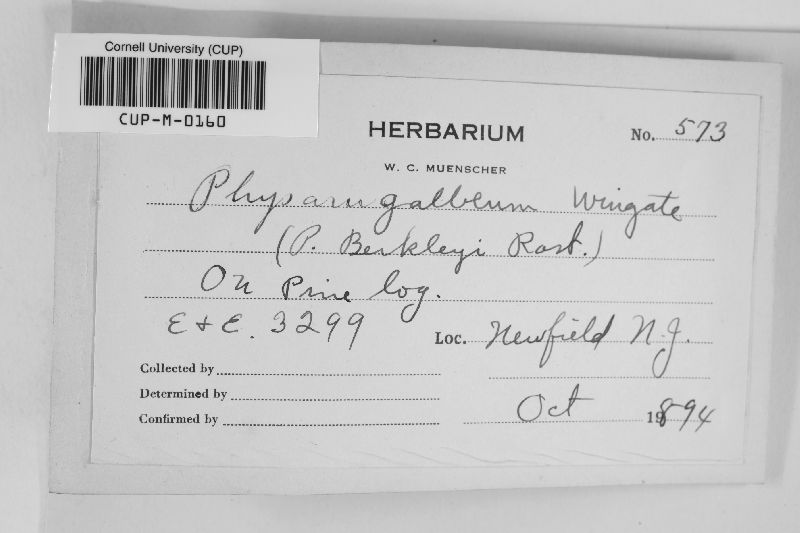 Cornell University (CUP)
CUP-M-0160
HERBARIUM
No. 573
W. C. MUENSCHER
Physarum galbeum Wingate
(P. Berkleyi Rost.)
On Pine log.
E & E. 3299
Loc. Newfield N.J.
Collected by
Determined by
Confirmed by
Oct 1894